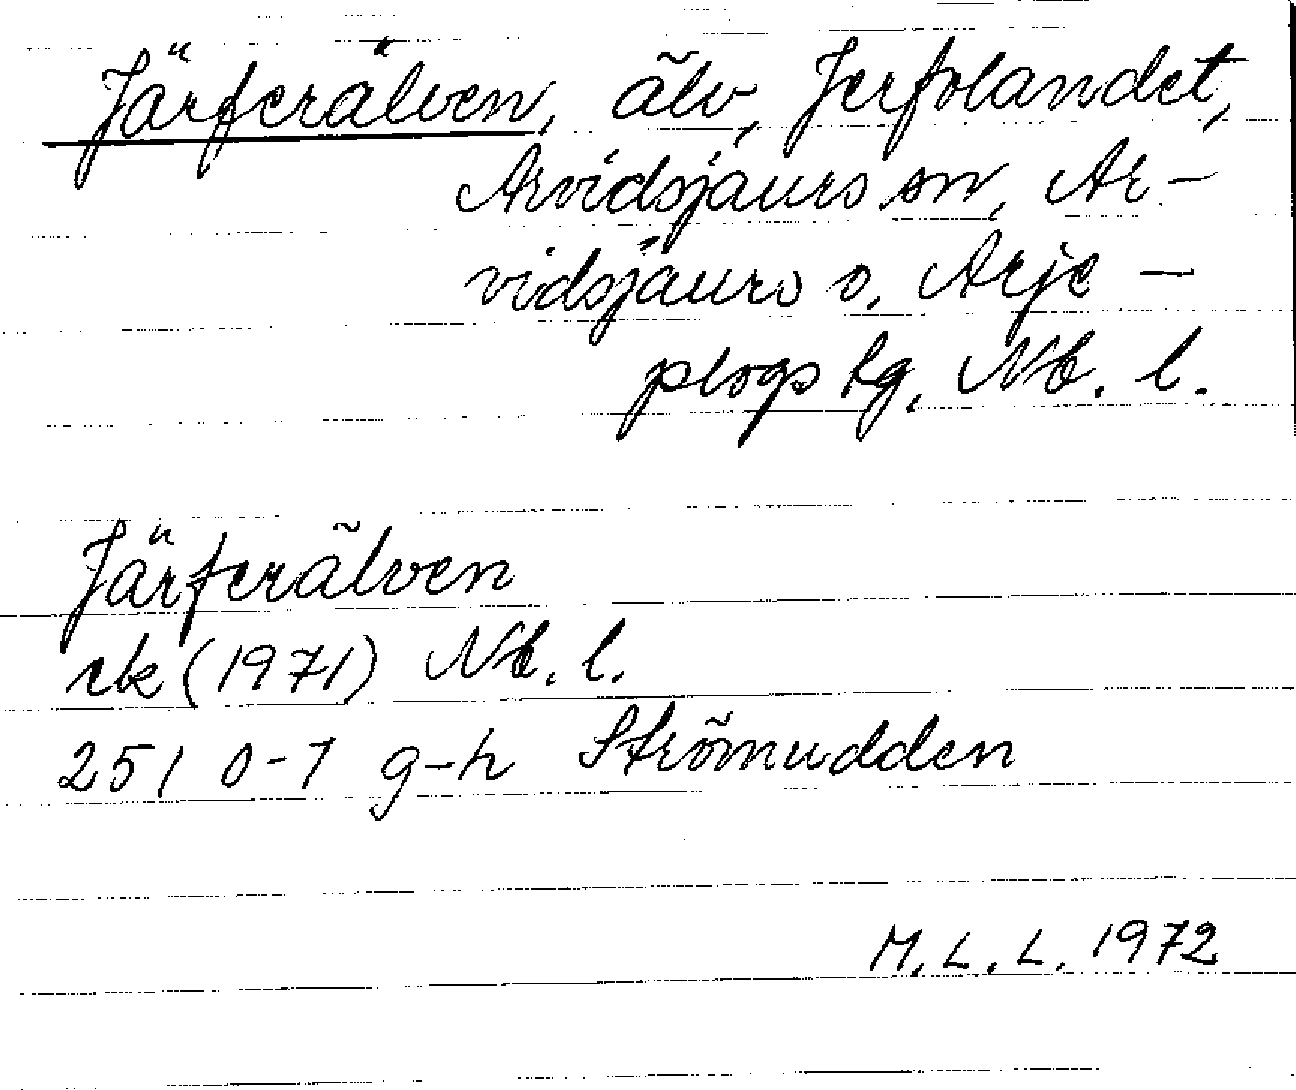 Järferälven, älv, Jerfolandet,
Arvidsjaurs sn, Ar-
vidsjaurs o. Arje-
plogs tg, Nb. l.
Järferälven
rek (1971) Nb. l.
25 I 0-1 g-h Strömudden
M. L. L. 1972